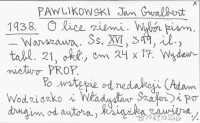 PAWLIKOWSKI Jan Gwalbert
1938. O lice ziemi. Wybór pism.
– Warszawa. Ss. XVI, 399, il.,
tabl. 21, okł., cm 24 x 17. Wydaw-
nictwo PROP.
Po wstępie od redakcji (Adam
Wodziczko i Władysław Szafer) i po
drugim od autora, książka zawiera